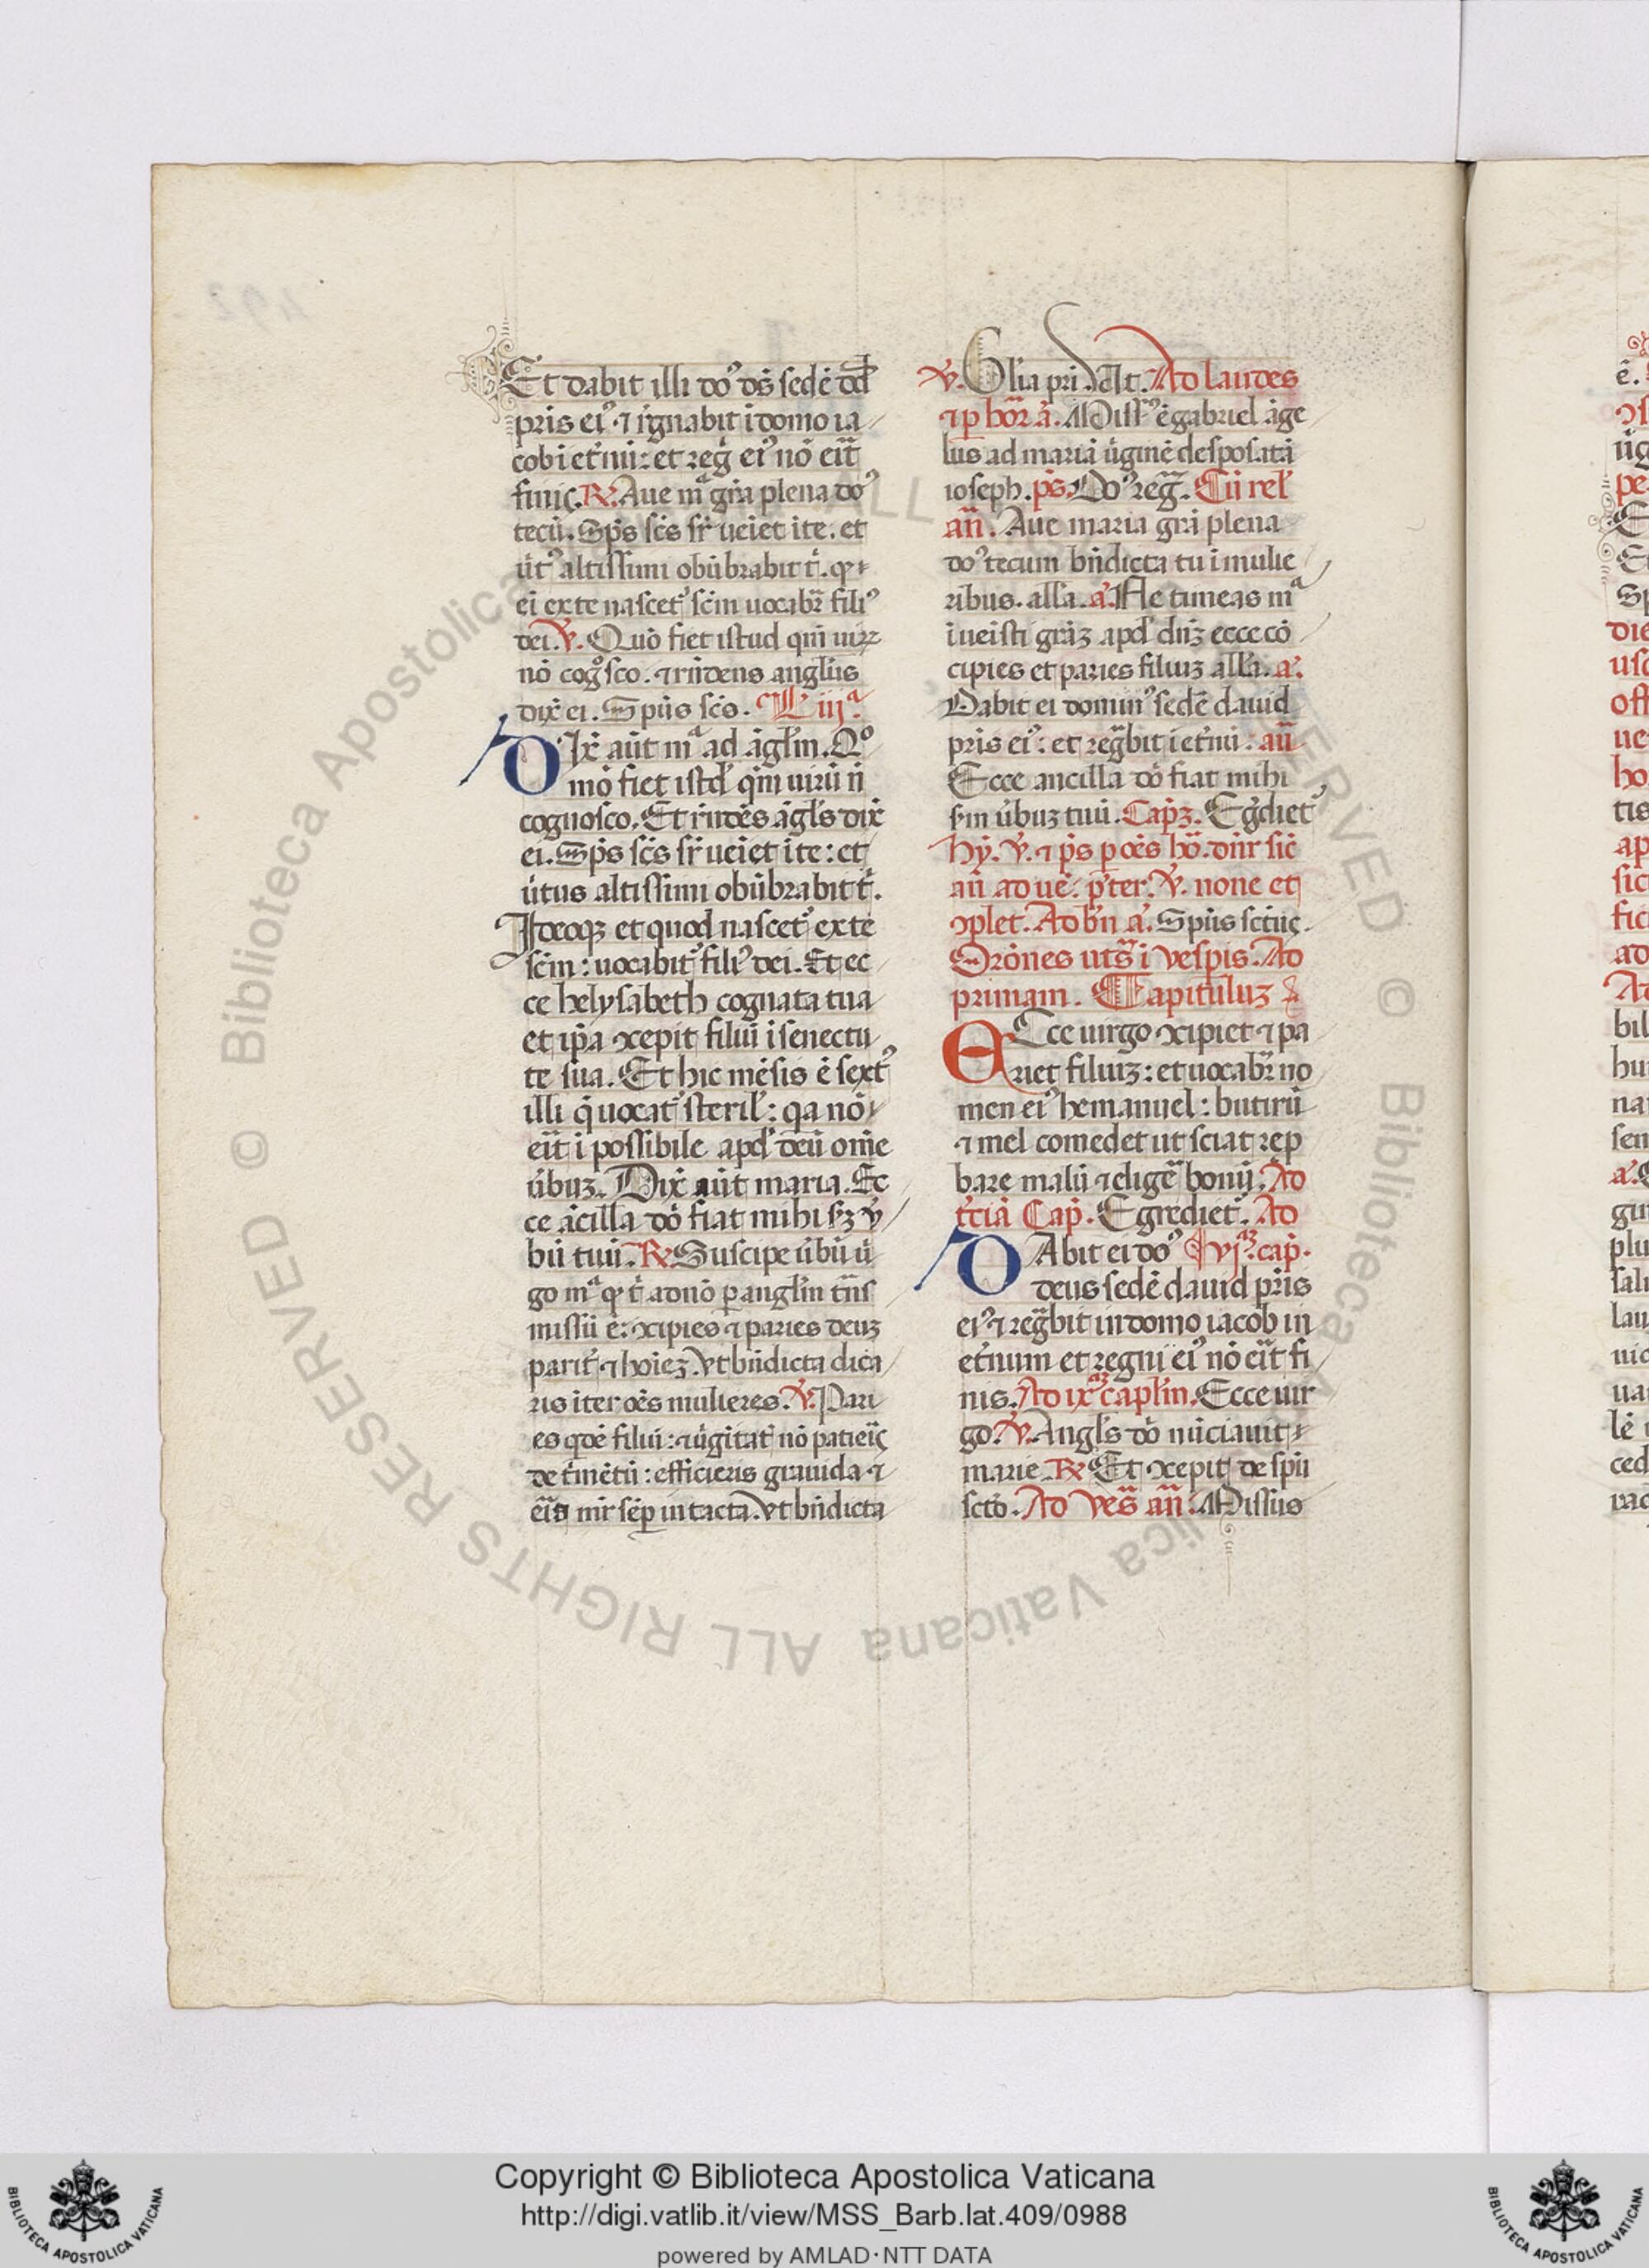 Et dabit illi do᷒ ds̄ sedē dd̄
pris ei᷒ ⁊ r̄gnabit ī domo ia
cob ī et̄nū: et reḡ ei᷒ nō eīt
finiς. R. Aue mª gr̄a plena do᷒
tecū. Sp̄s sc̄s sr̄ ueīet ī te. et
ut᷒ altissimi obūbrabit t̄. q ⁊
ei ex te nascet᷒ sc̄m uocabr̄ fili᷒
dei. V. Quō fiet istud qm̄ uirꝝ
nō cogᵒsco. ⁊ rn̄dens angl̄us
dix̄ ei. Spūs sc̄s. L iijª.
DIx̄ aūt mª ad āgl̄m. Qᵒ
mō fiet istd̄ qm̄ uirū n̄
cognosco. Et rn̄dēs āgl̄s dix̄
ei. Sp̄s sc̄s sr̄ ueīet ī te: et
u̇tus altissimi obūbrabit t̄.
Ideoqꝫ et quod nascet᷒ ex te
sc̄m: uocabit᷒ fili᷒ dei. Et ec
ce helysabeth cognata tua
et ip̄a ꝯcepit filiū ī senectu
te sua. Et hic mēsis ē sext᷒
illi q̄ uocat᷒ steril̄: qa nō
eīt ī possibile apd̄ deū om̄e
u̇buꝫ. Dix̄ aūt maria. Ec
ce ācilla dō fiat mihi sꝫ v̄
bū tuū. R. Suscipe u̇bū ū
go mª q t̄ a dn̄o ꝑ angl̄m tn̄s
missū ē: ꝯcipies ⁊ paries deuꝫ
parit̄ ⁊ hoīeꝫ. Vt bn̄dicta dica
ris īter oēs mulieres. V. Pari
es qdē filiū: ⁊ ūgītat̄ nō patieīς
det̄mētū: efficieris grauida ⁊
eīs mr̄ sēꝑ intacta. Vt bn̄dicta
V. Gl̄ia pri. Vt. Ad laudes
⁊ ꝑ hōr ā. Miss᷒ ē gabriel āge
lus ad mariā u̇ginē desposatā
ioseph. ps̄. Do᷒ reḡ. Cū rel̄
an̄. Aue maria gr̄a plena
do᷒ tecum bn̄dicta tu ī mulie
ribus. all̄a. a᷒. Ne timeas mª
īueīsti gr̄aꝫ apd̄ dn̄ꝫ ecce cō
cipies et paries filiuꝫ all̄a. a᷒.
Dabit ei domin᷒ sedē dauid
pris ei᷒: et regͣbit ī et̄nū. an̄
Ecce ancilla dō fiat mihi
sm̄ u̇buꝫ tuū. Cap̄ꝫ. Egdiet᷒
hy̅. V. ⁊ ps̄ ꝑ oēs hō. dn̄r sic̄
an̄ aduē. p᷒ter. V. none et
ꝯplet. Ad bn̄ a᷒. Spūs sctūς.
Orōnes uts̄ ī vespis. Ad
primam. Capituluꝫ
ECce uirgo ꝯcipiet ⁊ pa
riet filiuꝫ: et uocabr̄ no
men ei᷒ hemanuel: butirū
⁊ mel comedet ut sciat rep
bare malū ⁊ eligͤ bonū. Ad
t̄ciā Cap̄. Egrediet̄. Ad
DAbit ei do᷒ vjꝫ cap̄.
deus sedē dauid pr̄is
ei᷒ ⁊ regͣbit in domo iacob in
et̄num et regni ei᷒ nō eīt fi
nis. Ad ixꝫ capl̄m. Ecce uir
go. V. Angl̄s dō nūciauit
marie. R. Et ꝯcepit de spū
sctō. Ad Ves̄ an̄. Missus
Copyright © Biblioteca Apostolica Vaticana
http://digi.vatlib.it/view/MSS_Barb.lat.409/0988
powered by AMLAD·NTT DATA